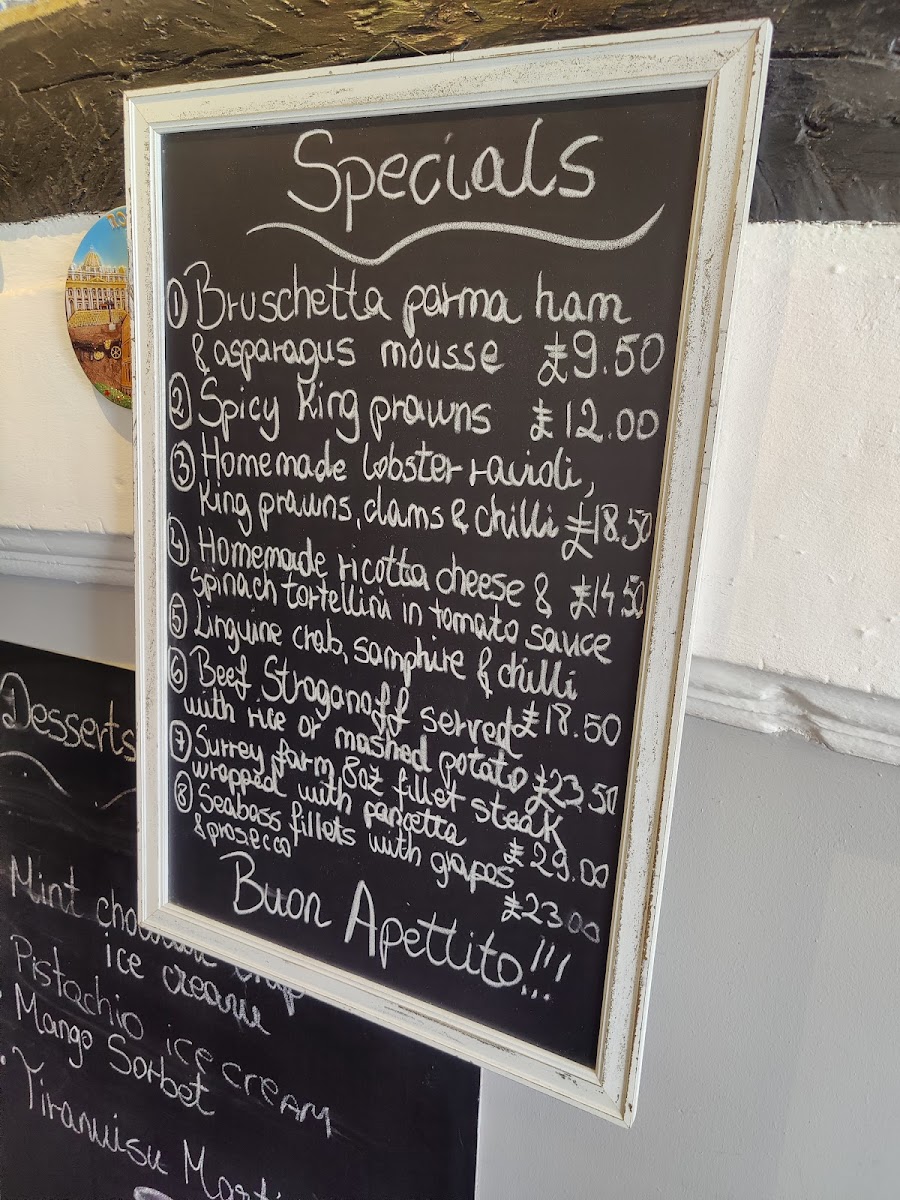 Specials
① Bruschetta parma ham
& asparagus mousse £9.50
② Spicy King prawns £12.00
③ Homemade lobster ravioli,
King prawns, clams & chilli £18.50
④ Homemade ricotta cheese & £14.50
spinach tortellini in tomato sauce
⑤ Linguine crab, samphire & chilli
£18.50
⑥ Beef Stroganoff served
with rice or mashed potato £23.50
⑦ Surrey farm 8oz fillet steak
wrapped with pancetta £29.00
⑧ Seabass fillets with grapes
& prosecco £23.00
Buon Apettito!!!
Desserts
Mint chocolate chip
ice cream
Pistachio ice cream
Mango Sorbet
Tiramisu